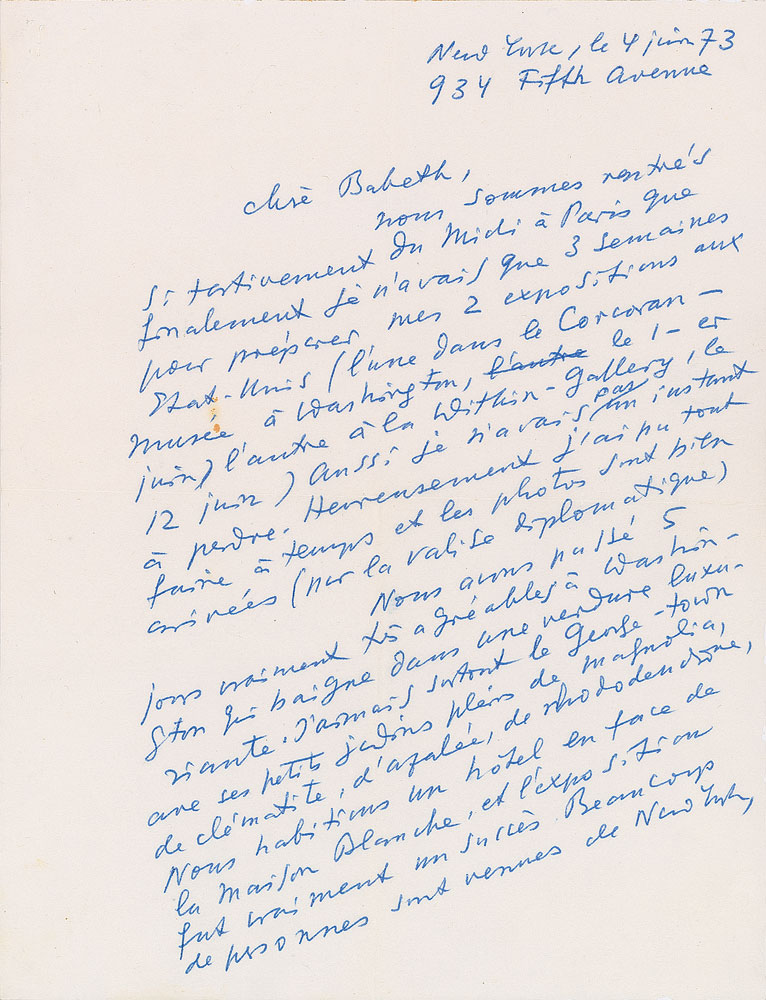 New York, le 4 juin 73
934 Fifth Avenue
chère Babeth,
nous sommes rentrés
si tartivement du Midi à Paris que
finalement je n'avais que 3 semaines
pour préparer mes 2 expositions aux
Etat-Unis (l'une dans le Corcoran-
musée à Washington, l'autre le 1-er
juin) l'autre à la Within-Gallery, le
12 juin) Aussi je n'avais pas un instant
à perdre. Heureusement j'ai pu tout
faire à temps et les photos sont bien
arrivées (par la valise diplomatique)
Nous avons passé 5
jours vraiment très agréables à Washin-
gton qui baigne dans une verdure luxu-
riante. J'aimais surtout le George-town
avec ses petits jardins pleins de magnolia,
de clématite, d'azalée, de rhododendrone,
Nous habitions un hôtel en face de
la Maison Blanche, et l'exposition
fut vraiment un succès Beaucoup
de personnes sont venues de New York,